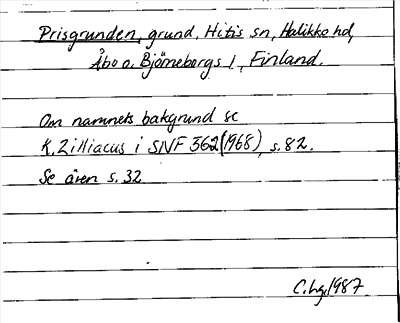 Prisgrunden, grund, Hitis sn, Halikko hd,
Åbo o. Björneborgs l, Finland.
Om namnets bakgrund se
K. Zilliacus i SNF 362 (1968), s. 82.
Se även s. 32
C.hg. 1987